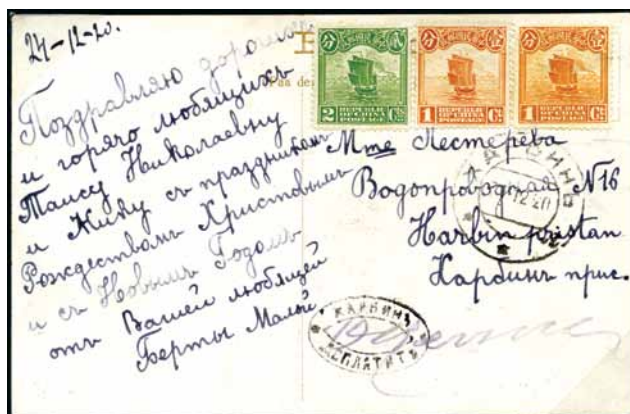 24-12-20.
Поздравляю дорогихъ
и горячо любящихъ
Таису Николаевну
и Жику съ праздникомъ
Рождествомъ Христовымъ
и съ Новымъ Годомъ
отъ Вашей любящей
Берты Малой
2 Cts
REPUBLIC OF CHINA POSTAGE
1 Ct
REPUBLIC OF CHINA POSTAGE
1 Ct
REPUBLIC OF CHINA POSTAGE
Mme Нестерева
Водопроводная №16
Harbin pristan
Харбинъ прис.
12 20
ХАРБИНЪ
ДОПЛАТИТЬ